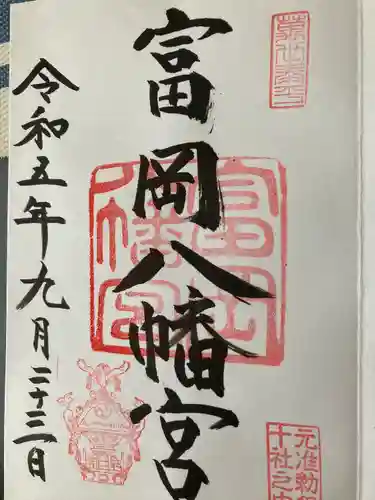 富岡八幡宮
令和五年九月二十三日
富岡八幡宮
元准勅
十社之